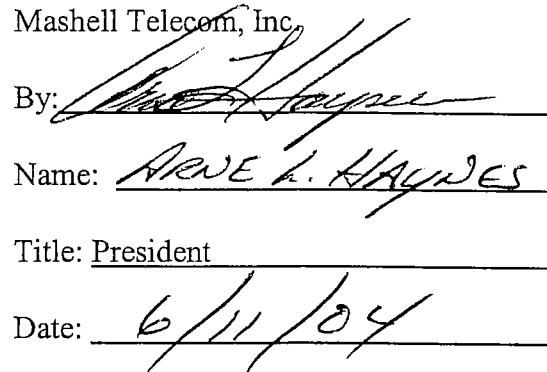 Mashell Telecom, Inc.
By: Arne L Haynes
Name: ARNE L. HAYNES
Title: President
Date: 6/11/04